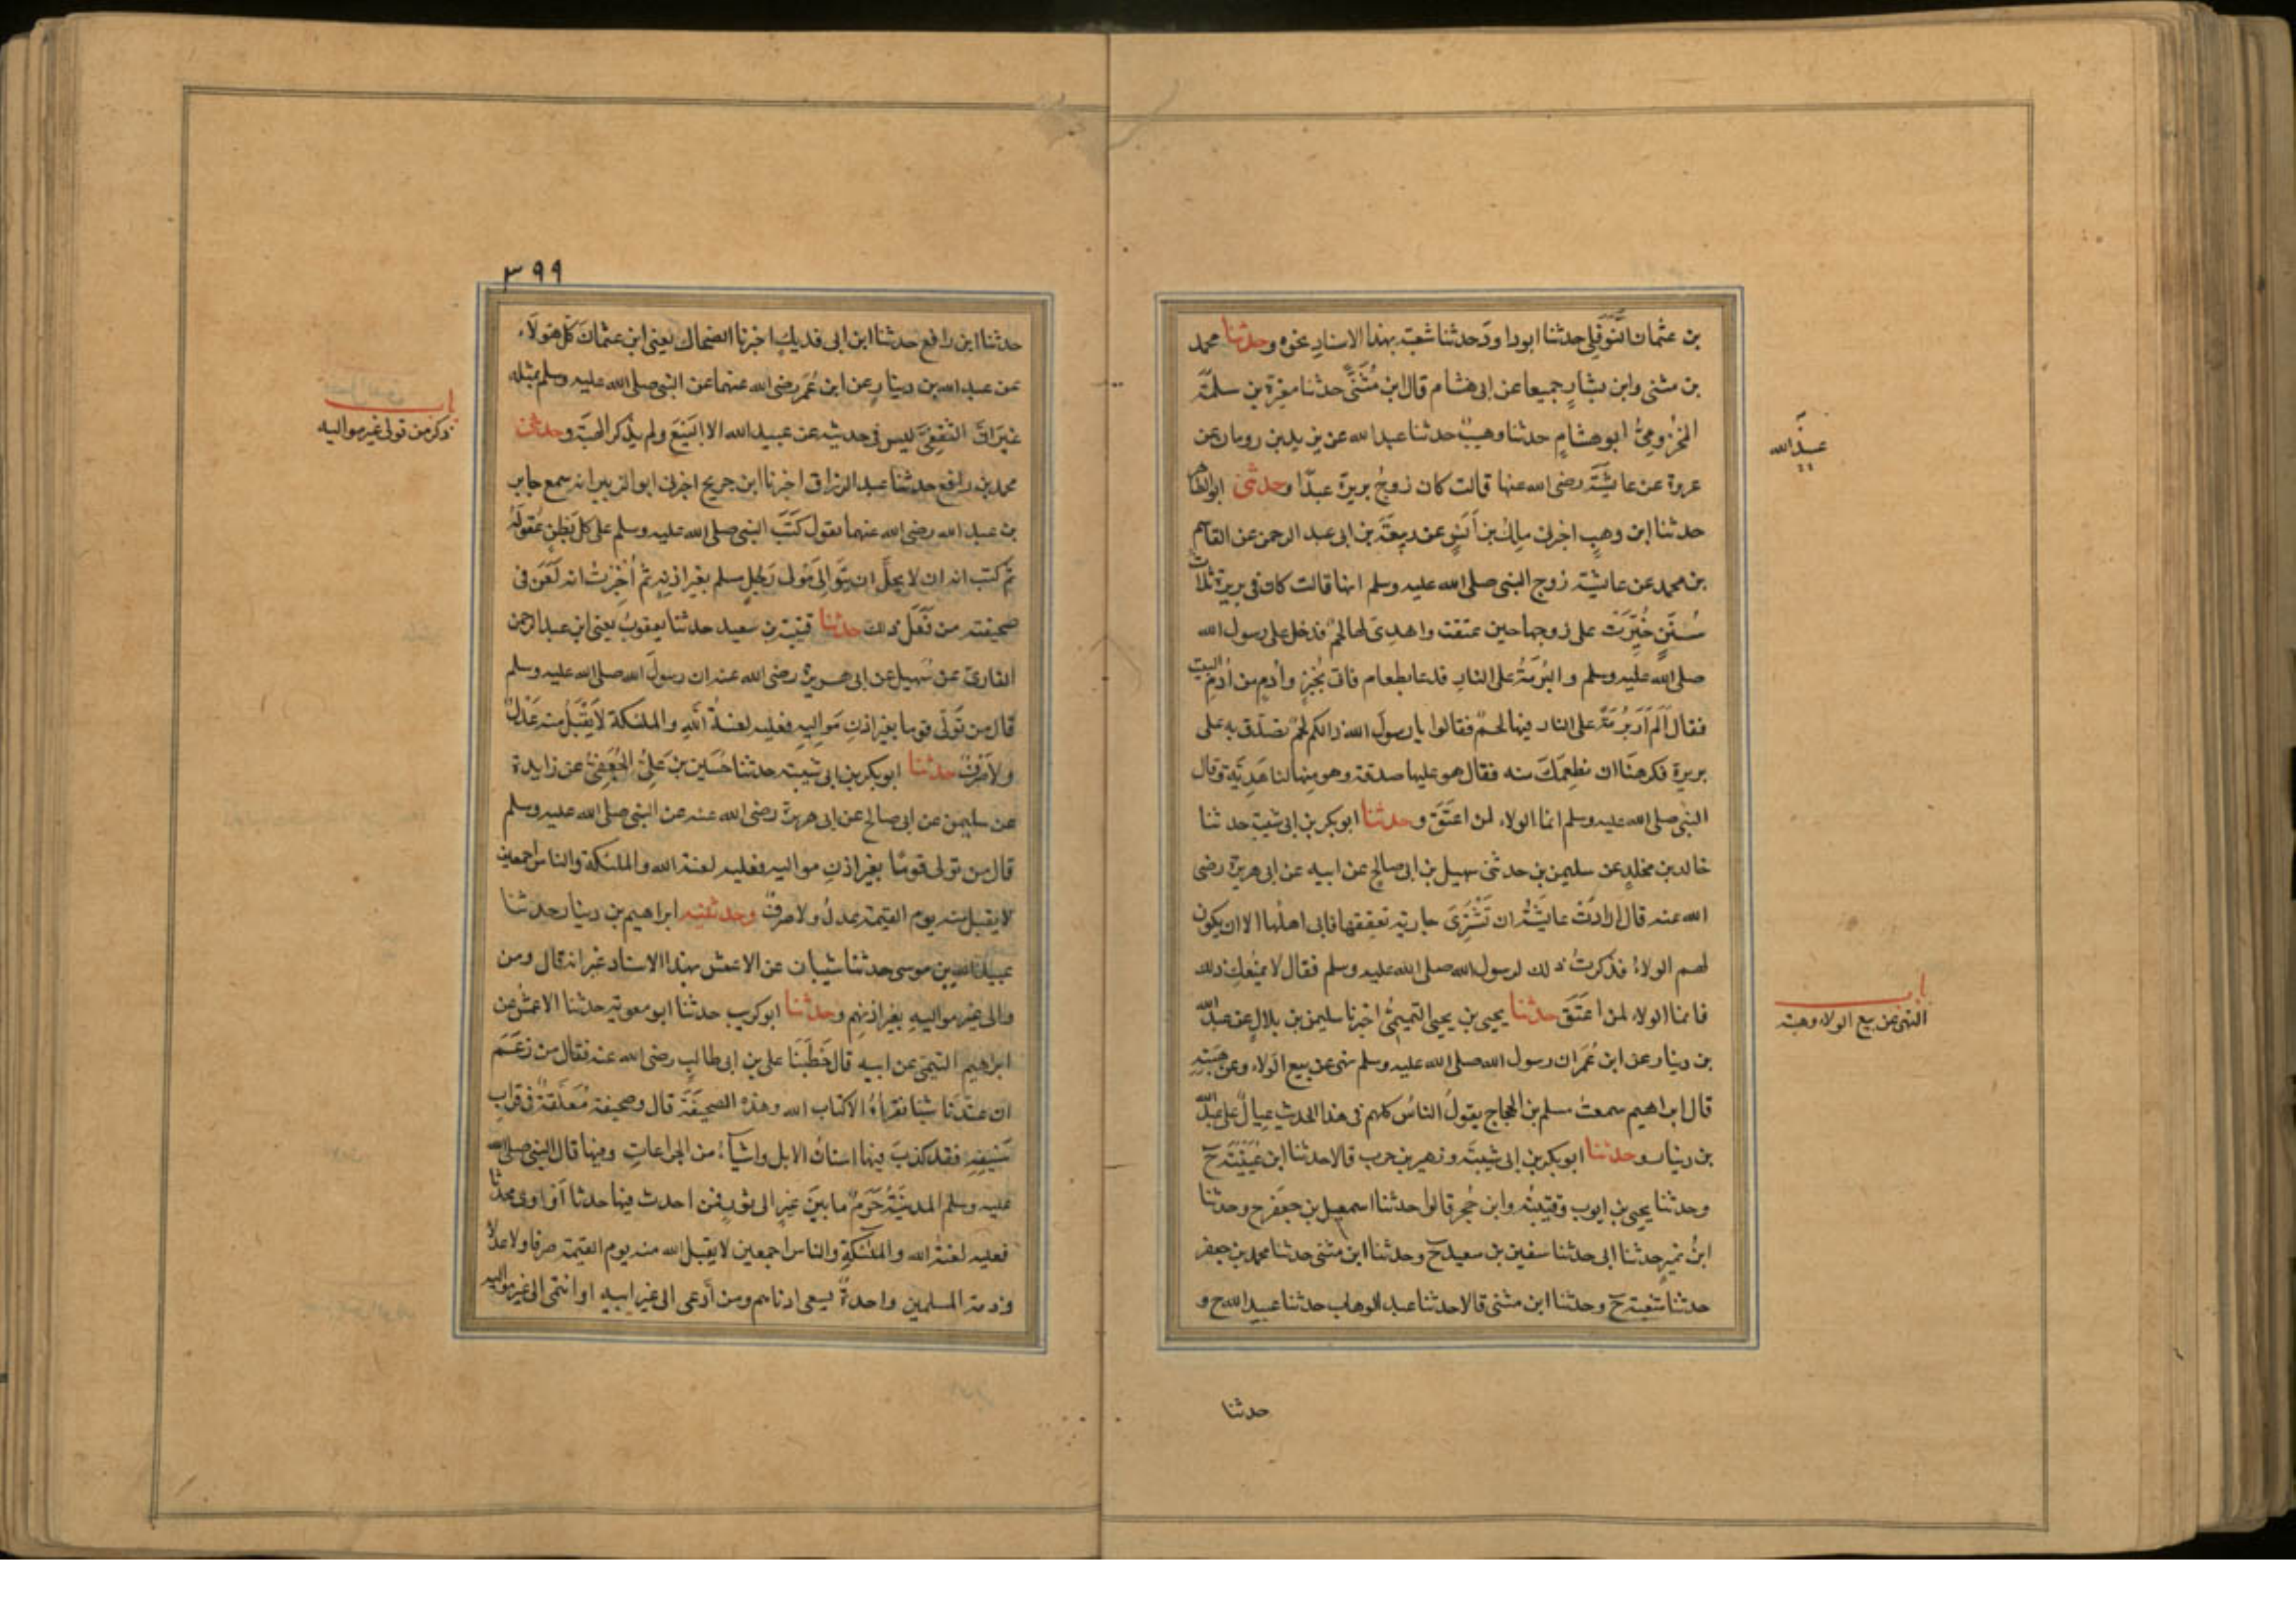 بن عثمان النَّوفلي حدثنا ابو داود حدثنا شعبة بهذا الاسناد نحوه وحدثنا محمد
بن مثنى وابن بشار جميعا عن ابى هشام قال ابن مُثَنَّى حدثنا مغيرة بن سلمة
المَخْزومىُّ ابو هشام حدثنا وهيبٌ حدثنا عبد الله عن يزيد بن رومان عن
عبيد الله
عروة عن عايشة رضى الله عنها قالت كان زوجُ بريرة عبدًا وحدثنى ابو الطاهر
حدثنا ابن وهبٍ اخبرنى مالك بن أنسٍ عن ربيعة بن ابى عبد الرحمن عن القاسم
بن محمد عن عايشة زوج النبى صلى الله عليه وسلم انها قالت كان فى بريرة ثلاث
سُنَنٍ خُيِّرَت على زوجها حين عتقت واهدِىَ لها لحمٌ فدخل على رسول الله
صلى الله عليه وسلم والبُرمَةُ على النار فدعا بطعام فاتى بخُبزٍ وأدمٍ من أُدمِ البيت
فقال اَلَم اَرَ بُرمَةً على النار فيها لحمٌ فقالوا يا رسول الله ذالكم لحمٌ تصدق به على
بريرة فكرهنا ان نطعمك منه فقال هو عليها صدقة وهو منها لنا هَدِيَّة وقال
النبى صلى الله عليه وسلم انما الولاء لمن اعتَقَ وحدثنا ابو بكر بن ابى شيبة حدثنا
خالد بن مخلدٍ عن سليمن بن حدثنى سهيل بن ابى صالح عن ابيه عن ابى هريرة رضى
الله عنه قال ارادَتْ عايشةُ ان تَشْتَرِىَ جارية تعتقها فابى اهلها الا ان يكون
لهم الولاءُ فذكرتُ ذلك لرسول الله صلى الله عليه وسلم فقال لا يمنعكِ ذلك
فانما الولاء لمن اعتَقَ حدثنا يحيى بن يحيى التميمىُّ اخبرنا سليمن بن بلالٍ عن عبد الله
باب
النهى عن بيع الولاء وهبته
بن دينار عن ابن عُمَرَ ان رسول الله صلى الله عليه وسلم نهى عن بيع الولاء وعن هبته
قال ابراهيم سمعتُ مسلم بن الحجاج يقولُ الناسُ كلهم فى هذا الحديث عِيالٌ على عبد الله
بن دينار وحدثنا ابو بكر بن ابى شيبة وزهير بن حرب قالا حدثنا ابن عُيَيْنَة ح
وحدثنا يحيى بن ايوب وقتيبة وابن حُجر قالوا حدثنا اسمعيل بن جعفر ح وحدثنا
ابنُ نميرٍ حدثنا ابى حدثنا سفين بن سعيد ح وحدثنا ابن مثنى حدثنا محمد بن جعفر
حدثنا شعبة ح وحدثنا ابن مثنى قالا حدثنا عبد الوهاب حدثنا عبيد الله ح و
حدثنا
٣٩٩
حدثنا ابن رافع حدثنا ابن ابى فديكٍ اخبرنا الضحاك يعنى ابن عثمانَ كُلُّ هولَاء
عن عبد الله بن دينارٍ عن ابن عُمَر رضى الله عنهما عن النبى صلى الله عليه وسلم بمثله
باب
ذكر من تولى غير مواليه
غيرَ انَّ الثقفىَّ ليس فى حديثه عن عبيد الله الا البَيْعَ ولم يذكر الهبَةَ وحدثنى
محمد بن رافع حدثنا عبد الرزاق اخبرنا ابن جريج اخبرنى ابو الزبير انه سمع جابر
بن عبد الله رضى الله عنهما يقول كَتَبَ النبى صلى الله عليه وسلم على كل بَطنٍ عُقولَهُ
ثم كتب انه ان لا يحلُّ ان يَتَوالى مَولى رَجُلٍ مسلم بغير اذنِهِ ثم اُخْبِرْتُ انه لَعَنَ فى
صحيفته من فَعَلَ ذلك حدثنا قتيبة بن سعيد حدثنا يعقوبُ يعنى ابن عبد الرحمن
القارىَّ عن سُهيل عن ابى هريرة رضى الله عنه ان رسولَ الله صلى الله عليه وسلم
قال من تَولّى قوما بغير اذنِ مَوالِيهِ فعليه لعنةُ الله والملئكة لا يُقْبَلُ منه عَدْلٌ
ولا صَرفٌ حدثنا ابو بكر بن ابى شيبة حدثنا حُسَين بن عَلِىٍّ الجُعَفِىُّ عن زايدة
عن سليمن عن ابى صالح عن ابى هريرة رضى الله عنه عن النبى صلى الله عليه وسلم
قال من تولى قومًا بغير اذنِ مواليه فعليه لعنة الله والملئكة والناس اجمعين
لا يقبل منه يوم القيمة عدلٌ ولا صرفٌ وحدثنيه ابراهيم بن دينار حدثنا
عبيد الله بن موسى حدثنا شيبان عن الاعمش بهذا الاسناد غير انه قال ومن
والى غير مواليهِ بغير اذنهم وحدثنا ابو كريب حدثنا ابو معوية حدثنا الاعمشُ عن
ابراهيم التيمى عن ابيه قال خَطَبَنَا على بن ابى طالب رضى الله عنه فقال من زَعَمَ
ان عندنا شيئا نقرأهُ الا كتاب الله وهذه الصحيفَةَ قال وصحيفة مُعَلَّقةٌ فى قراب
سَيفِهِ فقد كذبَ فيها اسنانُ الابل واشيآءُ من الجراحاتِ وفيها قال النبى صلى الله
عليه وسلم المدينَةُ حَرَمٌ ما بين عَيرٍ الى ثورٍ فمن احدث فيها حدثا اَو اوى محدثا
فعليه لعنةُ الله والملئكةِ والناس اجمعين لا يقبل الله منه يوم القيمة صرفا ولا عدلا
وذمة المسلمين واحدةٌ يسعى ادناهم ومن اَدعى الى غير ابيه او انتمى الى غير مواليه